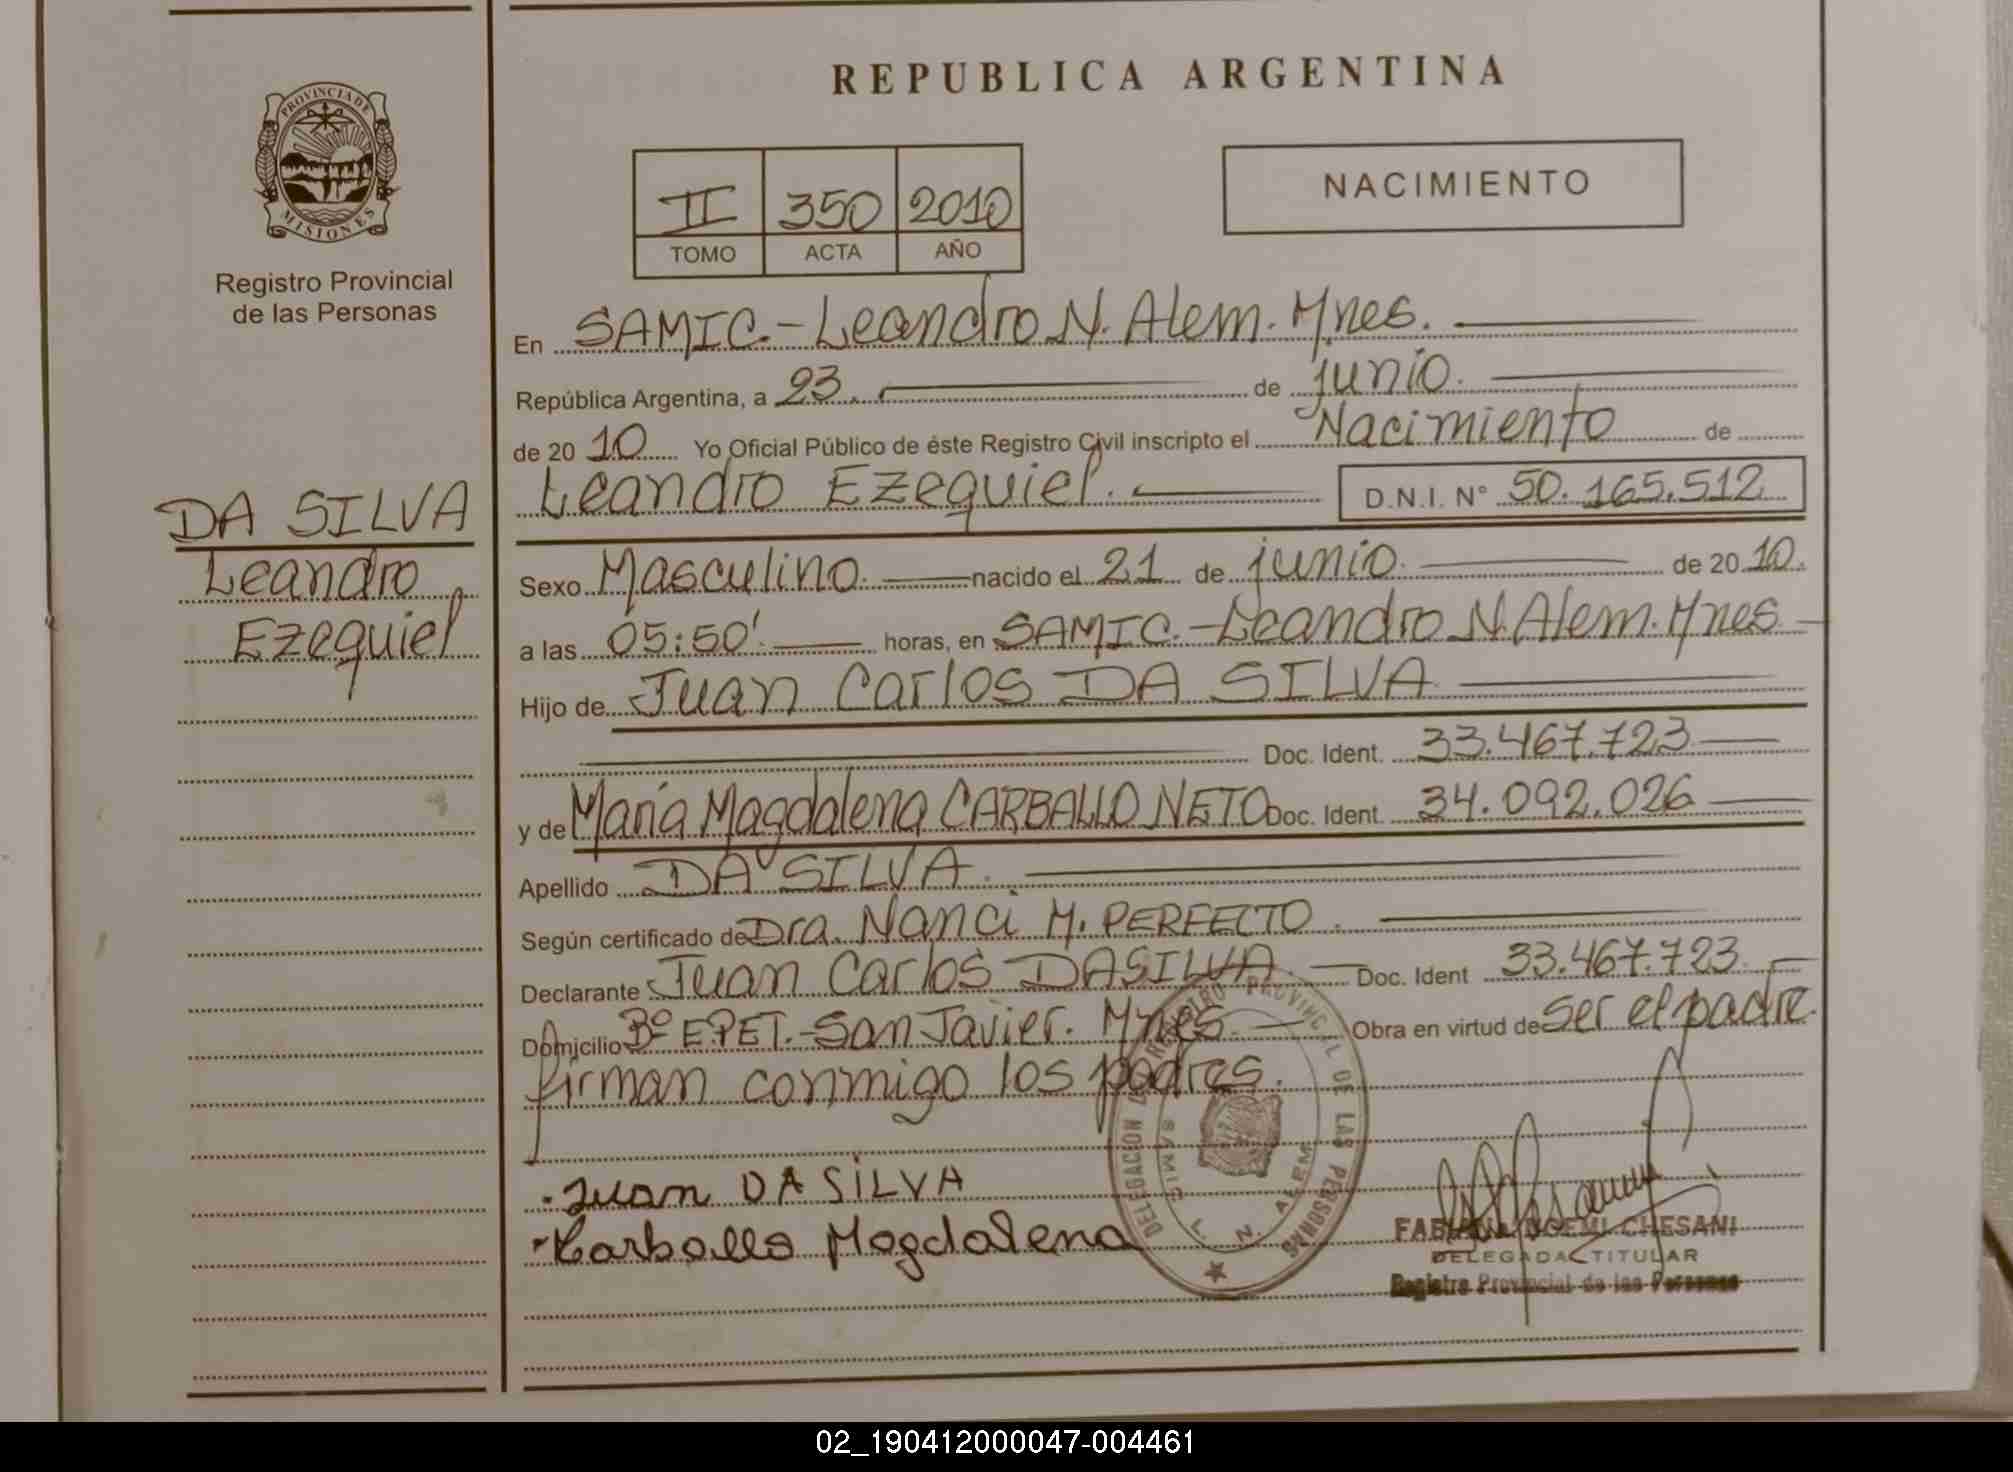 REPUBLICA ARGENTINA
PROVINCIA DE
MISIONES
Registro Provincial
de las Personas
II 350 2010
TOMO ACTA AÑO
NACIMIENTO
En SAMIC.-Leandro N. Alem. Mnes.
República Argentina, a 23. de junio.
de 20 10 Yo Oficial Público de éste Registro Civil inscripto el Nacimiento de
Leandro Ezequiel. D.N.I. N° 50.165.512
DA SILVA
Leandro
Ezequiel
Sexo Masculino. nacido el 21 de junio. de 20 10.
a las 05:50'. horas, en SAMIC.-Leandro N. Alem. Mnes.
Hijo de Juan Carlos DA SILVA
Doc. Ident. 33.467.723
y de María Magdalena CARBALLO NETO Doc. Ident. 34.092.026
Apellido DA SILVA.
Según certificado de Dra. Nanci M. PERFECTO.
Declarante Juan Carlos DASILVA. Doc. Ident 33.467.723
Domicilio Bº EPET.-San Javier. Mnes. Obra en virtud de ser el padre.
firman conmigo los padres.
DELEGACION REGISTRO PROVINCIAL DE LAS PERSONAS
SAMIC L. N. ALEM
Juan DA SILVA
Carballo Magdalena
FABIANA NOEMI CHESANI
DELEGADA TITULAR
Registro Provincial de las Personas
02_190412000047-004461